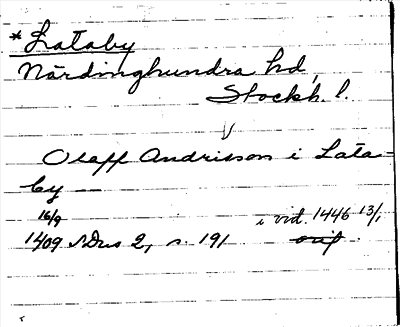 *Lataby
Närdinghundra hd,
Stockh. l.
Olaff Andrisson i Lata-
by —
16/9 i vid. 1446 13/1
1409 SDns 2, s. 191 orig.